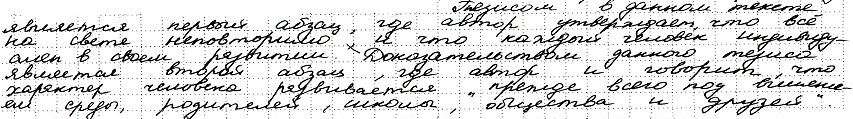 Тезисом, в данном тексте
является первый абзац, где автор утверждает, что всё
на свете неповторимо и что каждый человек индивиду-
ален в своем развитии. Доказательством данного тезиса
является второй абзац, где автор и говорит, что
характер человека развивается „прежде всего под влияни-
ем среды, родителей, школы, общества и друзей".